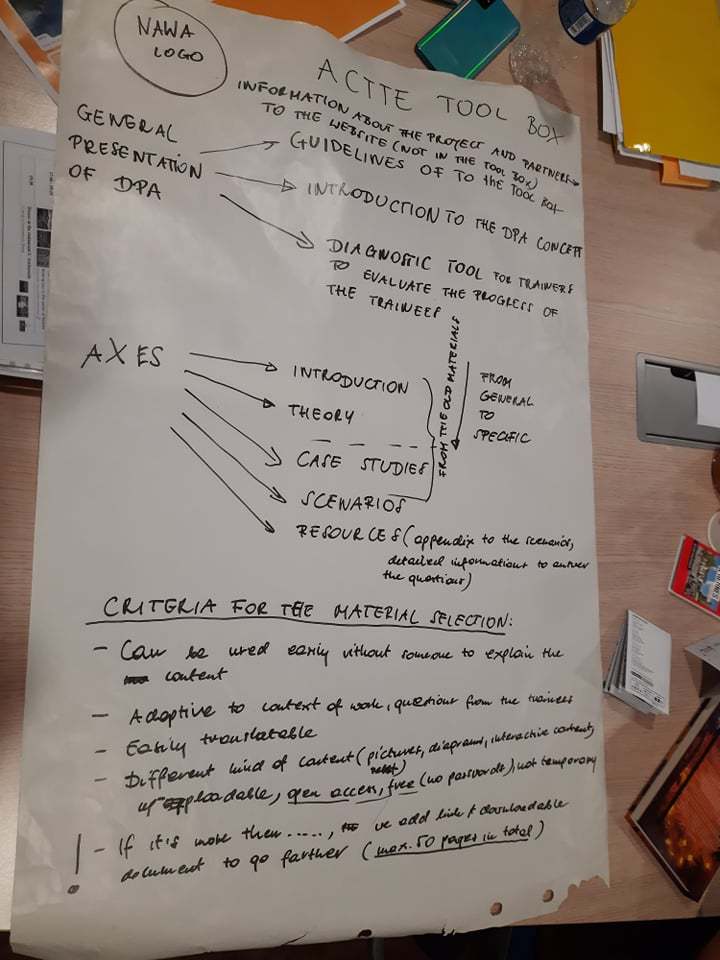 NAWA
LOGO
ACTTE TOOL BOX
INFORMATION ABOUT THE PROJECT AND PARTNERS →
TO THE WEBSITE (NOT IN THE TOOL BOX)
GENERAL
PRESENTATION
OF DPA
GUIDELINES OF TO THE TOOL BOX
INTRODUCTION TO THE DPA CONCEPT
DIAGNOSTIC TOOL FOR TRAINERS
TO EVALUATE THE PROGRESS OF
THE TRAINEES
AXES
INTRODUCTION
THEORY
CASE STUDIES
SCENARIOS
RESOURCES (appendix to the scenarios,
detailed informations to answer
the questions)
FROM THE OLD MATERIALS
FROM
GENERAL
TO
SPECIFIC
CRITERIA FOR THE MATERIAL SELECTION:
- Can be used easily without someone to explain the
content
- Adoptive to context of work, questions from the trainers
- Easily translatable
- Different kind of content (pictures, diagrams, interactive content,
uploadable, open access, free (no passwords), not temporary
! - If it's more then ....., we add link & downloadable
document to go farther (max. 50 pages in total)